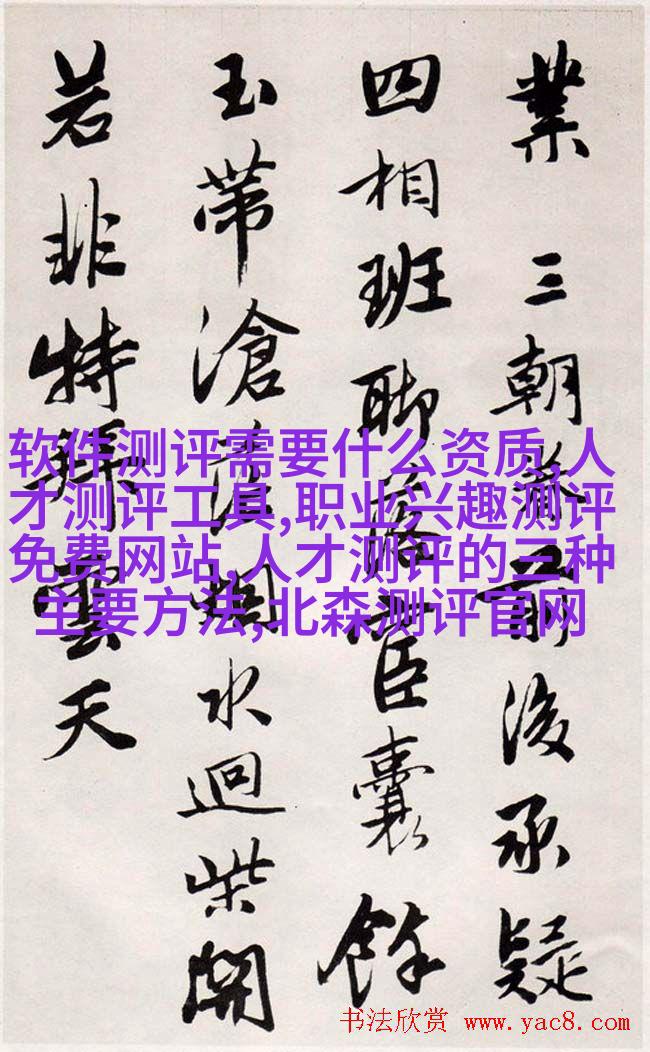 業 三朝前後承疑
四相班聊臣囊餘
玉帶滄水迴柴開
若非特雲天
软件测评需要什么资质,人
才测评工具,职业兴趣测评
免费网站,人才测评的三种
主要方法,北森测评官网
书法欣赏 www.yac8.com